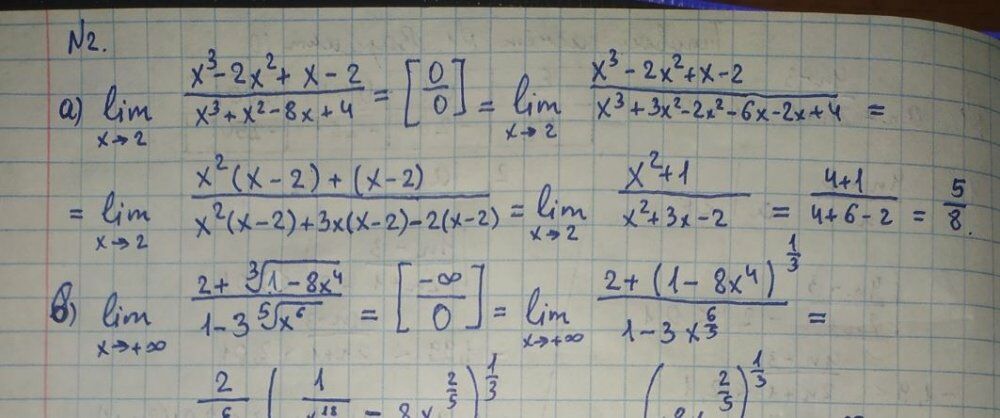 N2.
а) lim x→2 (x³-2x²+x-2)/(x³+x²-8x+4) = [0/0] = lim x→2 (x³-2x²+x-2)/(x³+3x²-2x²-6x-2x+4) =
= lim x→2 (x²(x-2)+(x-2))/(x²(x-2)+3x(x-2)-2(x-2)) = lim x→2 (x²+1)/(x²+3x-2) = (4+1)/(4+6-2) = 5/8.
в) lim x→+∞ (2+∛(1-8x⁴))/(1-3⁵√x⁶) = [-∞/0] = lim x→+∞ (2+(1-8x⁴)^(1/3))/(1-3x^(6/5)) =
2/ (1/x^18 - 8x^(2/5))^(1/3) ( x^(2/5))^(1/3)